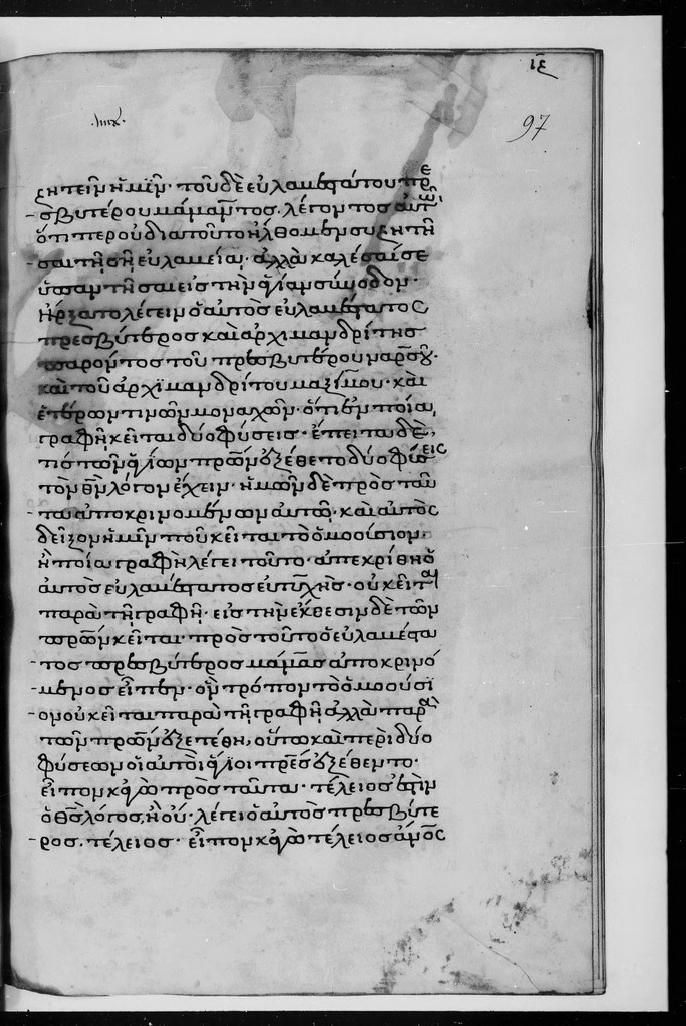 ιε
97
ζητεῖν ἡμῖν· τοῦ δὲ εὐλαβεστάτου πρε
σβυτέρου μάμαντος λέγοντος αὐτῶ
ὅτιπερ οὐ διατοῦτο ἤλθομεν συζητῆ
σαι τῆ σῆ εὐλαβείᾳ· ἀλλὰ καλέσαι σε
ὑπαντῆσαι εἰς τὴν ἁγίαν σύνοδον·
ἤρξατο λέγειν ὁ αὐτὸς εὐλαβέστατος
πρεσβύτερος καὶ ἀρχιμανδρίτης
παρόντος τοῦ πρεσβυτέρου ναρσοῦ·
καὶ τοῦ ἀρχιμανδρίτου μαξίμου· καὶ
ἑτέρων τινῶν μοναχῶν· ὅτι ἐν ποίᾳ
γραφῆ κεῖται δύο φύσεις· ἔπειτα δὲ,
τίς τῶν ἁγίων πρῶν ἐξέθετο δύο φύσεις
τὸν θν λόγον ἔχειν· ἡμῶν δὲ πρὸς ταῦ
τα ἀποκρινομένων αὐτῶ· καὶ αὐτὸς
δεῖξον ἡμῖν ποῦ κεῖται τὸ ὁμοούσιον·
ἢ ποία γραφὴ λέγει τοῦτο· ἀπεκρίθη ὁ
αὐτὸς εὐλαβέστατος εὐτυχής· οὐ κεῖται
παρὰ τῆ γραφῆ· εἰς τὴν ἔκθεσιν δὲ τῶν
πρῶν κεῖται· πρὸς τοῦτο ὁ εὐλαβέστα
τος πρεσβύτερος μάμας ἀποκρινό
μενος εἶπεν· ὃν τρόπον τὸ ὁμοούσι
ον οὐ κεῖται παρὰ τῆ γραφῆ ἀλλὰ παρὰ
τῶν πρῶν ἐξετέθη, οὕτω καὶ περὶ δύο
φύσεων οἱ αὐτοὶ ἅγιοι πρες ἐξέθεντο·
εἶπον κἀγὼ πρὸς ταῦτα· τέλειος ἐστὶν
ὁ θς λόγος, ἢ οὔ· λέγει ὁ αὐτὸς πρεσβύτε
ρος· τέλειος· εἶπον κἀγὼ τέλειος ἄνος